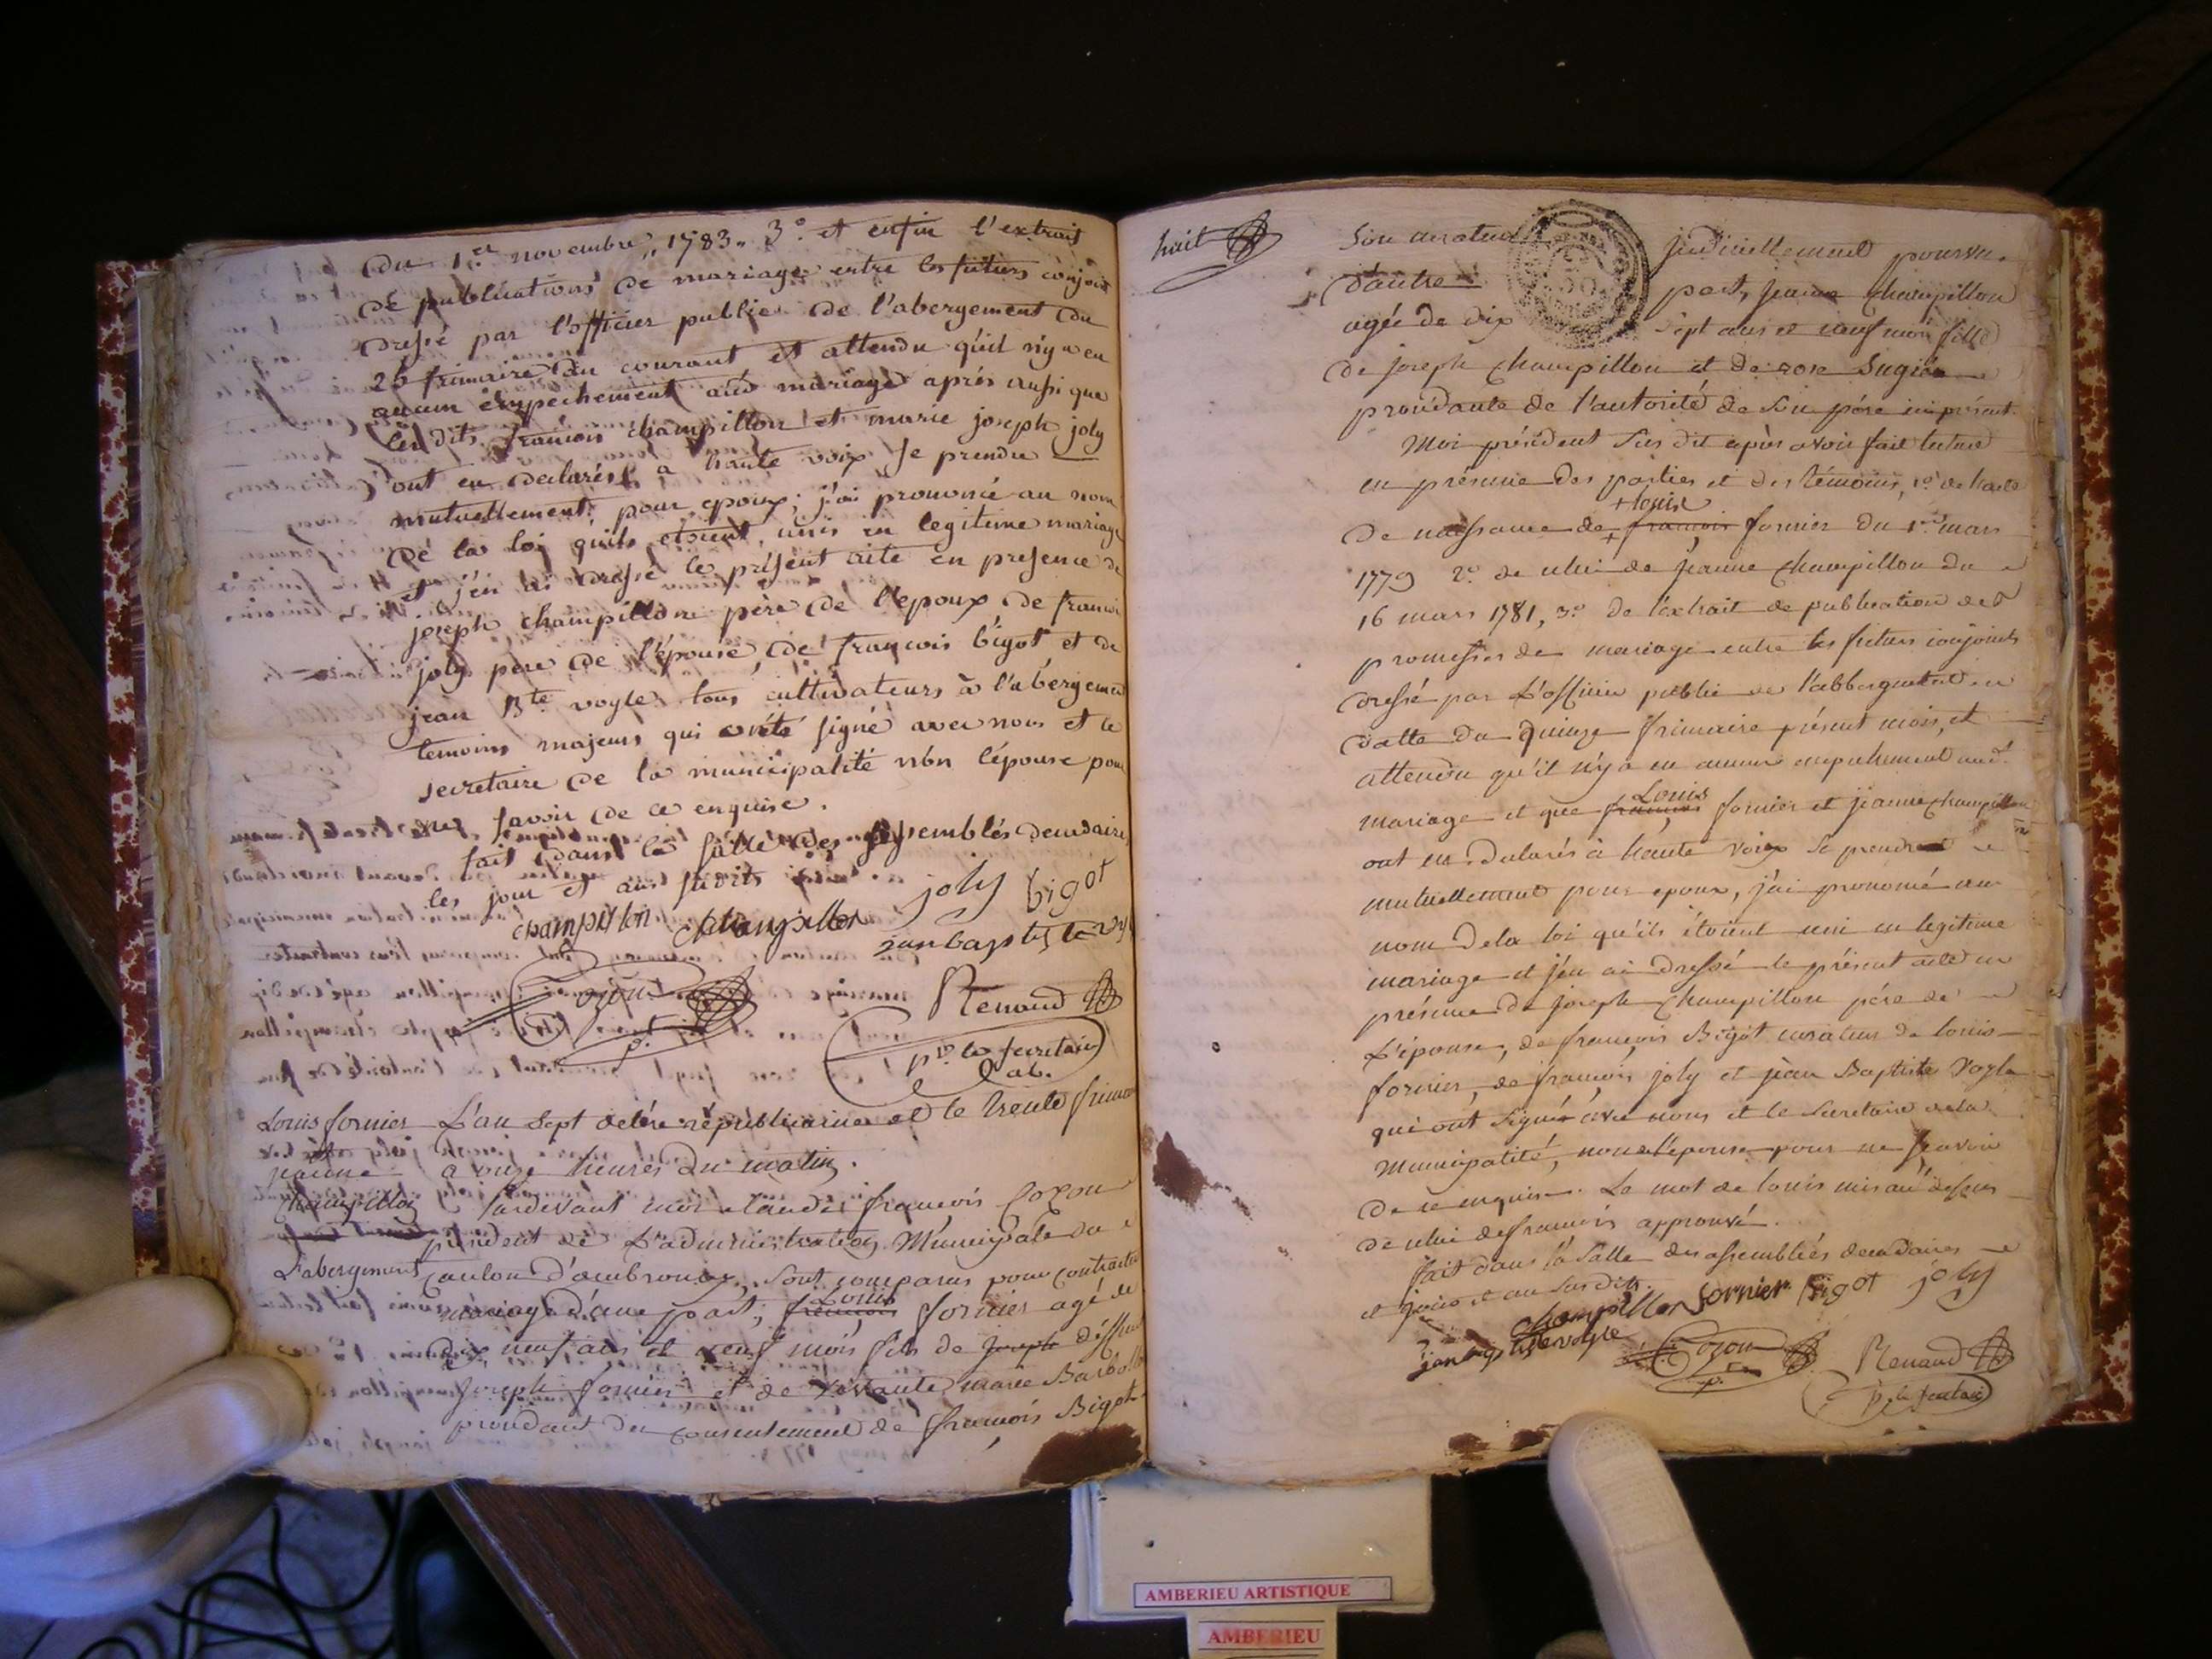 du 1.er novembre 1783. 3.o et enfin l'extrait
de publications de mariage entre les futurs conjoint
dressé par l'officier public de l'abergement du
25 frimaire du courant et attendu quil n'y a eu
aucun empechement aud mariage aprés aussi que
lesdits francois champillon et marie joseph joly
ont eu declarés a haute voix se prendre
mutuellement pour epoux, j'ai prononcé au nom
de la loi quils etoient unis en legitime mariage
et j'en ai dressé le présent acte en presence de
joseph champillon père de l'epoux de francois
joly pere de l'épouse, de françois bigot et de
jean Bte voyle tous cultivateurs à l'abergement
temoins majeurs qui ont signé avec nous et le
secretaire de la municipalité non l'épouse pour
ne savoir de ce enquise.
fait dans la salle des assemblés decadaires
les jour et an susdits
champillon champillon joly bigot
jean baptiste
Cozon Renaud
p. pr. le secretaire
ab.
Louis fornier L'an sept de l'ére républicaine et le trente frimaire
jeanne a onze heures du matin.
Champillon Pardevant moi claude françois Cozon
président de L'administration Municipale du
L'abergement Canton d'ambronay, sont comparus pour contracter
Louis
mariage d'une part, françois fornier agé de
dix neuf ans et neuf mois fils de joseph deffunt
joseph fornier et de vivante marie
procédant du consentement de françois Bigot
huit
Son curateur judiciellement pourvu.
D'autre part, jeanne Champillon
agée de dix sept ans et neuf mois fille
de joseph Champillon et de rose
procédante de l'autorité de Son pére ici présent.
Moi président Sus dit après avoir fait lecture
en présence des parties et des témoins, 1.o de l'acte
+ louis
de naissance de + françois fornier du 1.er mars
1779 2.o de celui de jeanne Champillon du
16 mars 1781, 3.o de l'extrait de publication des
promesses de mariage entre les futurs conjoints
dressé par L'officier public de l'abbergement en
datte du quinze frimaire présent mois, et
attendu qu'il n'y a eu aucun empechement aud.
Louis
mariage et que françois fornier et jeanne champillon
ont eu Declarés à haute voix se prendre
mutuellement pour epoux, j'ai prononcé au
nom de la loi qu'ils étoient uni en legitime
mariage et j'en ai dressé le présent acte en
présence de joseph Champillon pére de
L'épouse, de françois Bigot curateur de louis
fornier, de françois joly et jean Baptiste Voyle
qui ont signé avec nous et le Secretaire de la
Municipalité, non l'épouse pour ne savoir
de ce enquise. Le mot de louis mis au dessus
de celui de francois approuvé.
fait dans la Salle des assemblés decadaires
et jour et an susdits.
champillon fornier Bigot joly
jean baptiste voyle Cozon Renaud
p. p. le secretaire
AMBERIEU ARTISTIQUE
AMBERIEU